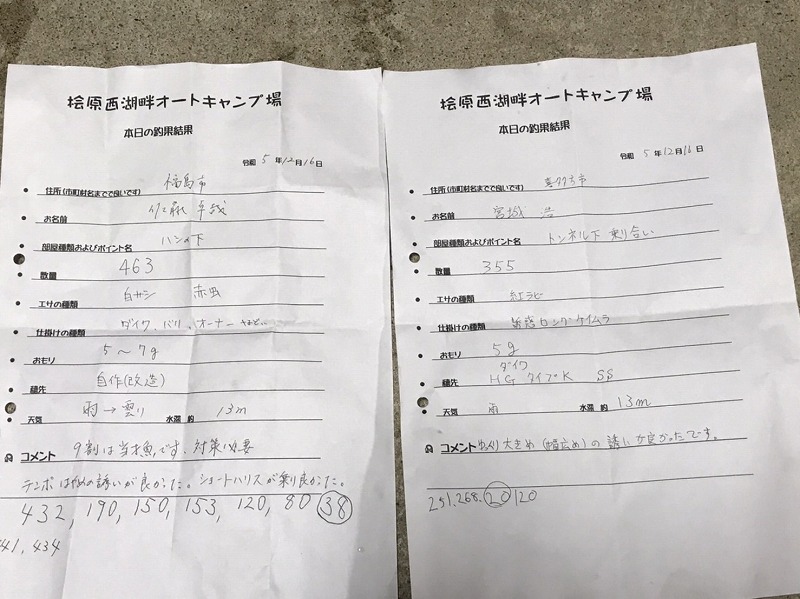 桧原西湖畔オートキャンプ場
本日の釣果結果
令和 5 年 12 月 16 日
住所(市町村名までで良いです) 福島市
お名前 佐藤 卓哉
部屋種類およびポイント名 ハシの下
数量 463
エサの種類 白サシ 赤虫
仕掛けの種類 ダイワ、バリ、オーナー など…
おもり 5〜7g
穂先 自作(改造)
天気 雨→曇り 水深 約 13m
コメント 9割は当才魚です。対策必要
テンポはやめの誘いが良かった。ショートハリスが乗り良かった。
432, 190, 150, 153, 120, 80 38
41, 434
桧原西湖畔オートキャンプ場
本日の釣果結果
令和 5 年 12 月 16 日
住所(市町村名までで良いです) 喜多方市
お名前 宮城 浩
部屋種類およびポイント名 トンネル下 乗り合い
数量 355
エサの種類 紅ラビ
仕掛けの種類 誘惑ロングケイムラ
おもり 5g
ダイワ
穂先 HG タイプK SS
天気 雨 水深 約 13m
コメント ゆっくり大きめ(幅広め)の誘いが良かったです。
251, 268, 20 120